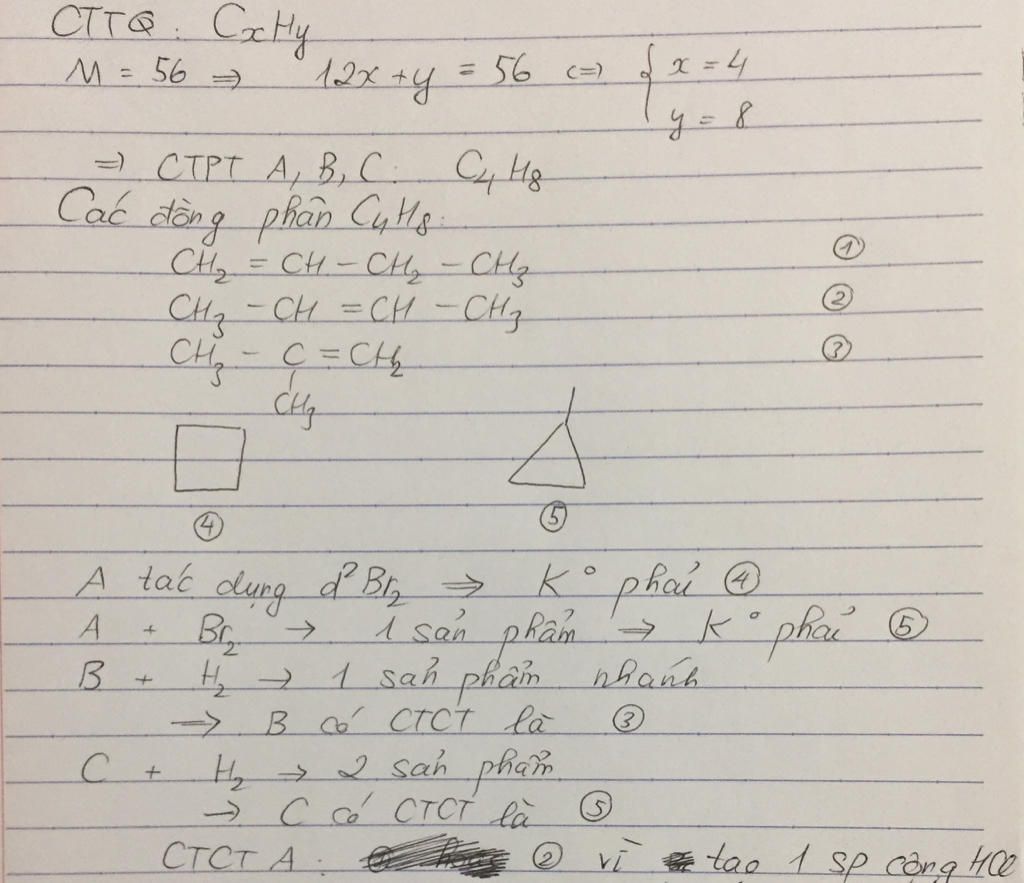 CTTQ : CxHy
M = 56 => 12x + y = 56 <=> { x = 4
y = 8
=> CTPT A, B, C : C4H8
Các đồng phân C4H8 :
CH2 = CH - CH2 - CH3 ①
CH3 - CH = CH - CH3 ②
CH3 - C = CH2 ③
CH3
④ ⑤
A tác dụng d² Br2 => K° phải ④
A + Br2 → 1 sản phẩm => K° phải ⑤
B + H2 → 1 sản phẩm nhánh
=> B có CTCT là ③
C + H2 → 2 sản phẩm
→ C có CTCT là ⑤
CTCT A : ② vì tạo 1 sp cộng HCl